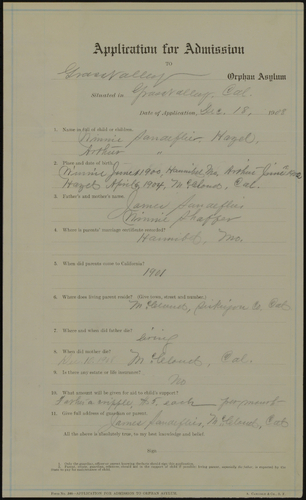 Application for Admission
TO
Grass Valley Orphan Asylum
Situated in Grass Valley, Cal.
Date of Application, Dec. 18, 1908
1. Name in full of child or children.
Minnie Hazel,
Arthur "
2. Place and date of birth.
Minnie June 1900, Hannibal Mo Arthur June
Hazel April 6, 1904, McCloud, Cal.
3. Father's and mother's name.
James
Minnie Shaffer
4. Where is parents' marriage certificate recorded?
Hannibal, Mo.
5. When did parents come to California?
1901
6. Where does living parent reside? (Give town, street and number.)
McCloud, Siskiyou Co Cal
7. Where and when did father die?
living
8. When did mother die?
McCloud, Cal.
9. Is there any estate or life insurance?
No
10. What amount will be given for aid to child's support?
each per month
11. Give full address of guardian or parent.
James McCloud, Cal
All the above is absolutely true, to my best knowledge and belief.